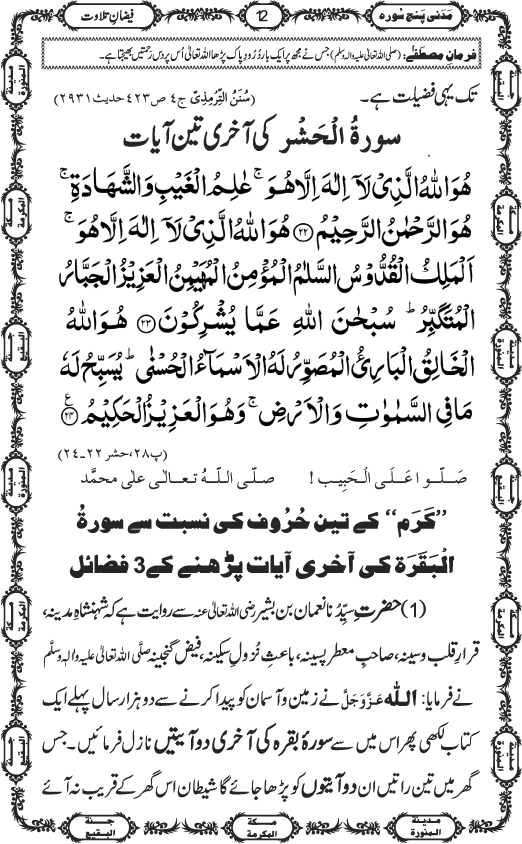 مَدَنی پنج سورہ
12
فیضانِ تلاوت
فرمانِ مصطفٰے: (صلی اللہ تعالیٰ علیہ والہ وسلم) جس نے مجھ پر ایک بار دُرُودِ پاک پڑھا اللہ تعالیٰ اُس پر دس رحمتیں بھیجتا ہے۔
تک یہی فضیلت ہے۔ (سُنَنُ التِّرمِذِیّ ج٤ ص٤٢٣ حدیث ٢٩٣١)
سورۃُ الْحَشْر کی آخری تین آیات
هُوَ اللّٰهُ الَّذِیْ لَاۤ اِلٰهَ اِلَّا هُوَ ۚ عٰلِمُ الْغَیْبِ وَ الشَّهَادَةِ ۚ
هُوَ الرَّحْمٰنُ الرَّحِیْمُ ﴿۲۲﴾ هُوَ اللّٰهُ الَّذِیْ لَاۤ اِلٰهَ اِلَّا هُوَ ۚ
اَلْمَلِكُ الْقُدُّوْسُ السَّلٰمُ الْمُؤْمِنُ الْمُهَیْمِنُ الْعَزِیْزُ الْجَبَّارُ
الْمُتَكَبِّرُ ؕ سُبْحٰنَ اللّٰهِ عَمَّا یُشْرِكُوْنَ ﴿۲۳﴾ هُوَ اللّٰهُ
الْخَالِقُ الْبَارِئُ الْمُصَوِّرُ لَهُ الْاَسْمَآءُ الْحُسْنٰى ؕ یُسَبِّحُ لَهٗ
مَا فِی السَّمٰوٰتِ وَ الْاَرْضِ ۚ وَ هُوَ الْعَزِیْزُ الْحَكِیْمُ ﴿۲۴﴾ ع
(پ٢٨، حشر ٢٢۔٢٤)
صَلُّوا عَلَی الْحَبِیب ! صلَّی اللہُ تعالیٰ علٰی محمَّد
’’کَرَم‘‘ کے تین حُرُوف کی نسبت سے سورۃُ
الْبَقَرَۃ کی آخری آیات پڑھنے کے 3 فضائل
(1) حضرتِ سیِّدُنا نعمان بن بشیر رضی اللہ تعالیٰ عنہ سے روایت ہے کہ شہنشاہِ مدینہ،
قرارِ قلب و سینہ، صاحبِ معطر پسینہ، باعثِ نُزولِ سکینہ، فیض گنجینہ صلَّی اللہ تعالیٰ علیہ والہٖ وسلَّم
نے فرمایا: اللہ عَزَّوَجَلَّ نے زمین و آسمان کو پیدا کرنے سے دو ہزار سال پہلے ایک
کتاب لکھی پھر اس میں سے سورۂ بقرہ کی آخری دو آیتیں نازل فرمائیں۔ جس
گھر میں تین راتیں ان دو آیتوں کو پڑھا جائے گا شیطان اس گھر کے قریب نہ آئے
مدینۃ المنورۃ
مکۃ المکرمۃ
جنۃ البقیع
مدینۃ المنورۃ
مکۃ المکرمۃ
جنۃ البقیع
جنۃ البقیع
مکۃ المکرمۃ
مدینۃ المنورۃ
جنۃ البقیع
مکۃ المکرمۃ
مدینۃ المنورۃ
مدینۃ المنورۃ
مکۃ المکرمۃ
جنۃ البقیع